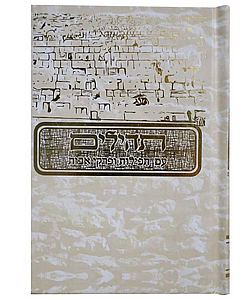 תהילים
עם תפילות ופרקי אבות